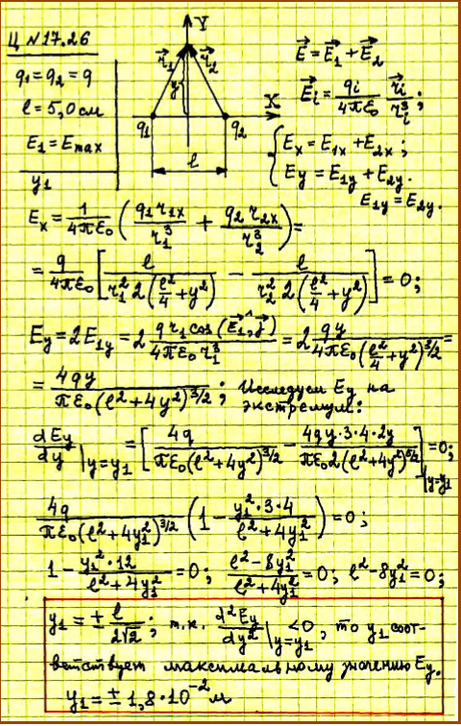 Ц №17.26
q₁ = q₂ = q
l = 5,0 см
E₁ = E max
y₁
Y
r⃗₁ r⃗₂
y
X
q₁ q₂
l
E⃗ = E⃗₁ + E⃗₂
E⃗ᵢ = qᵢ/(4πε₀) r⃗ᵢ/rᵢ³ ;
{ Eₓ = E₁ₓ + E₂ₓ ;
Eᵧ = E₁ᵧ + E₂ᵧ.
E₁ᵧ = E₂ᵧ.
Eₓ = 1/(4πε₀) (q₁r₁ₓ/r₁³ + q₂r₂ₓ/r₂³) =
= q/(4πε₀) [l/(r₁² 2(l²/4 + y²)) − l/(r₂² 2(l²/4 + y²))] = 0;
Eᵧ = 2E₁ᵧ = 2 q r₁ cos(E⃗₁^j⃗)/(4πε₀ r₁³) = 2 qy/(4πε₀(l²/4 + y²)^(3/2)) =
= 4qy/(πε₀(l² + 4y²)^(3/2)) ; Исследуем Eᵧ на
экстремум:
dEᵧ/dy |y=y₁ = [4q/(πε₀(l² + 4y²)^(3/2)) − 4qy·3·4·2y/(πε₀2(l² + 4y²)^(5/2))]|y=y₁ = 0;
4q/(πε₀(l² + 4y₁²)^(3/2)) (1 − y₁²·3·4/(l² + 4y₁²)) = 0;
1 − y₁²·12/(l² + 4y₁²) = 0; (l² − 8y₁²)/(l² + 4y₁²) = 0; l² − 8y₁² = 0;
y₁ = ± l/(2√2) ; т.к. d²Eᵧ/dy² |y=y₁ < 0, то y₁ соот-
ветствует максимальному значению Eᵧ.
y₁ = ± 1,8·10⁻² м